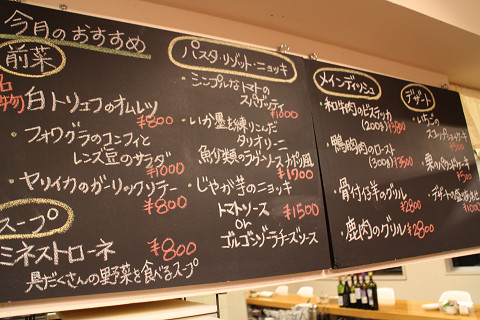 今月のおすすめ
前菜
名物 白トリュフのオムレツ
¥800
・フォワグラのコンフィと
レンズ豆のサラダ
¥1000
・ヤリイカのガーリックソテー
¥800
スープ
ミネストローネ ¥800
具だくさんの野菜を食べるスープ
パスタ・リゾット・ニョッキ
・シンプルなトマトの
スパゲッティ
¥1000
・いか墨を練りこんだ
タリオリーニ
魚介類のラグーソース ナポリ風
¥1900
・じゃが芋のニョッキ
トマトソース ¥1500
or
ゴルゴンゾーラチーズソース
メインディッシュ
・和牛肉のビステッカ
(200g)
・鴨胸肉のロースト
(300g) ¥3500
・骨付仔羊のグリル
¥2800
・鹿肉のグリル ¥2800
デザート
・いちごの
¥500
・栗のパウンドケーキ
¥500
・デザートの盛り合わせ
¥1000